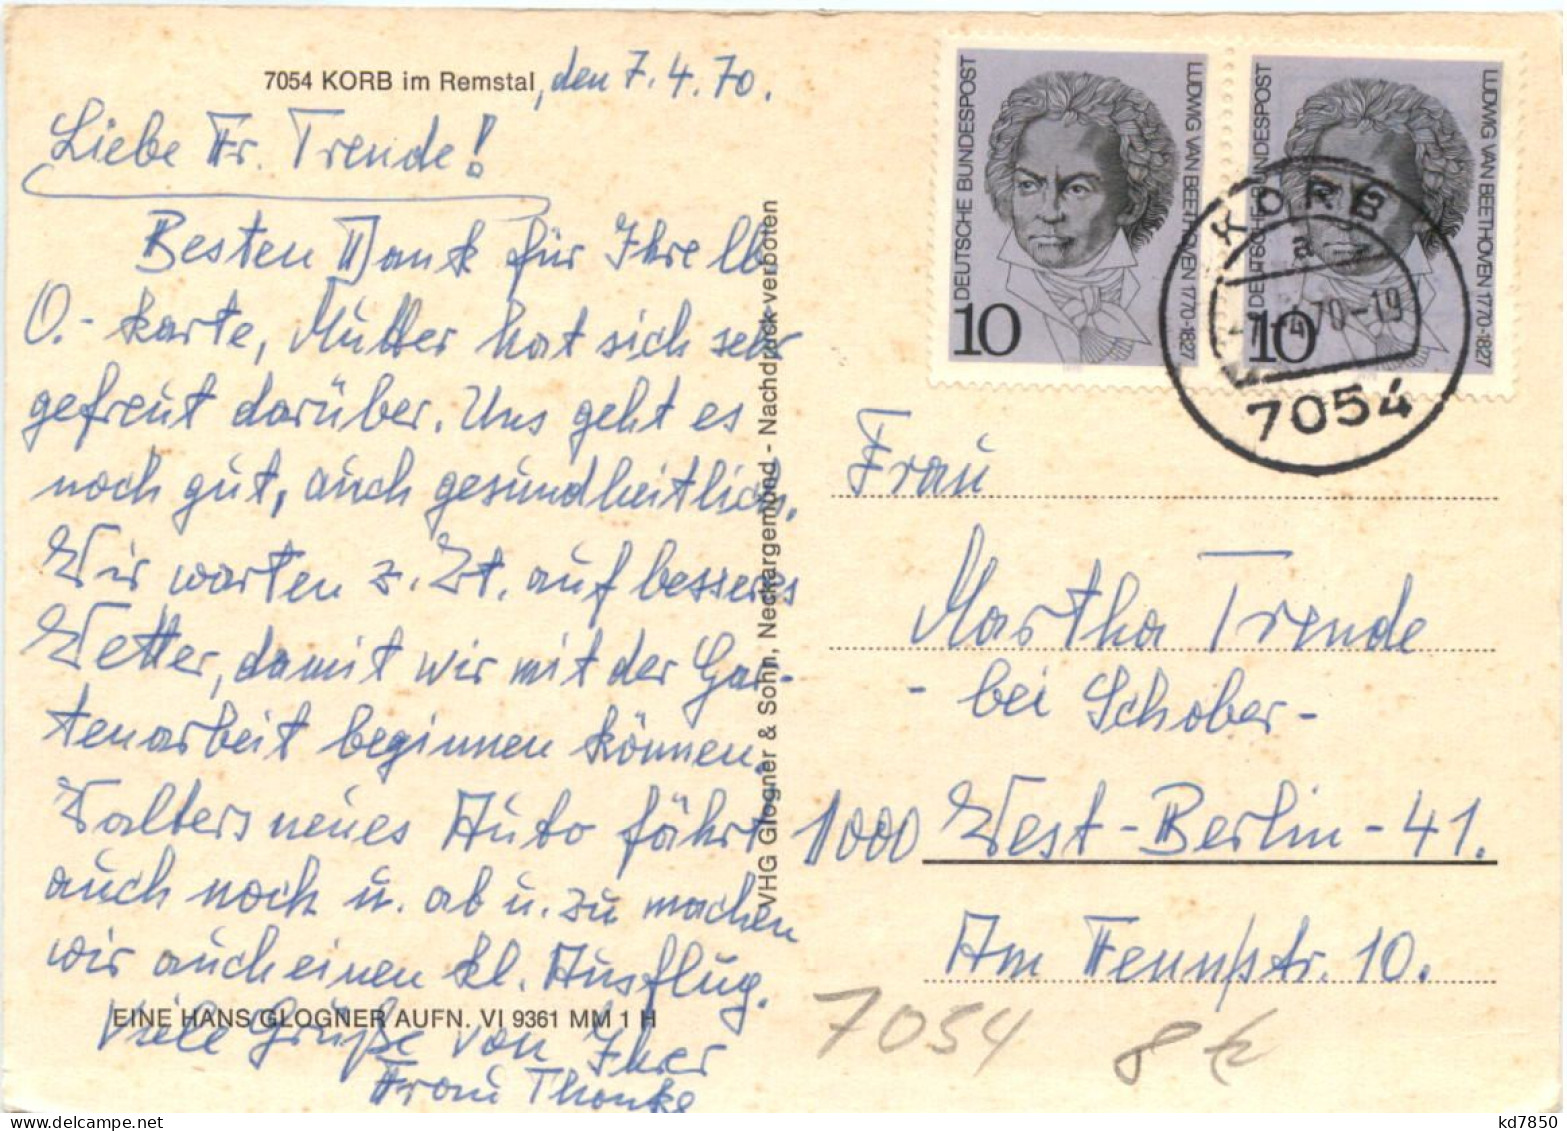 7054 KORB im Remstal, den 7.4.70.
Liebe Fr. Trende!
Besten Dank für Ihre lb
O.-karte, Mutter hat sich sehr
gefreut darüber. Uns geht es
noch gut, auch gesundheitlich.
Wir warten z. Zt. auf besseres
Wetter, damit wir mit der Gar-
tenarbeit beginnen können.
Walters neues Auto fährt
auch noch u. ab u. zu machen
wir auch einen kl. Ausflug.
EINE HANS GLOGNER AUFN. VI 9361 MM 1 H
Viele Grüße von Ihrer
Frau Thonke
VHG Glogner & Sohn, Neckargemünd - Nachdruck verboten
DEUTSCHE BUNDESPOST
LUDWIG VAN BEETHOVEN 1770-1827
10
DEUTSCHE BUNDESPOST
LUDWIG VAN BEETHOVEN 1770-1827
10
KORB
a
-7.-4.70-19
7054
Frau
Martha Trende
- bei Schober -
1000 West-Berlin-41.
Am Fennstr. 10.
7054 8€
kd7850